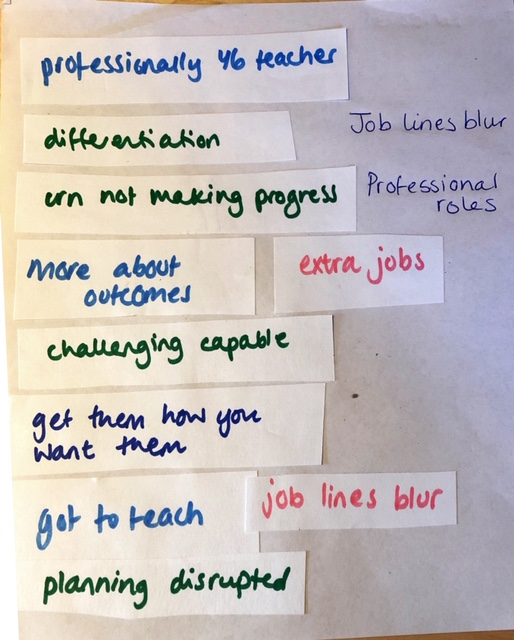 professionally y6 teacher
differentiation
Job lines blur
crn not making progress
Professional
roles
more about
outcomes
extra jobs
challenging capable
get them how you
want them
got to teach
job lines blur
planning disrupted